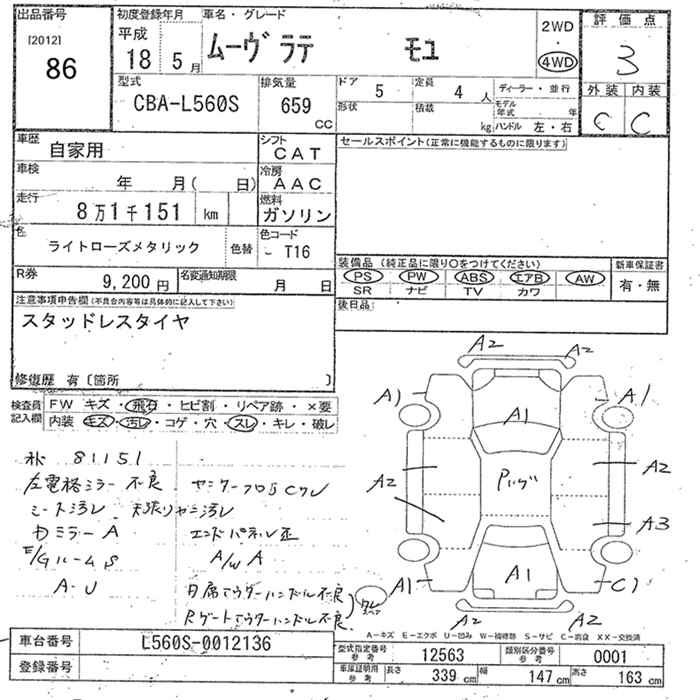 出品番号
[2012]
86
初度登録年月
平成
18 5月
車名・グレード
ムーヴ ラテ モユ
2WD
4WD
評価点
3
型式
CBA-L560S
排気量
659
CC
ドア
5
定員
4人
形状
積載
kg
ディーラー・並行
モデル
年式
年
ハンドル 左・右
外装 内装
C C
車歴
自家用
シフト
CAT
セールスポイント(正常に機能するものに限ります)
車検
年 月( 日)
冷房
AAC
走行
8万1千151 km
燃料
ガソリン
色
ライトローズメタリック
色替
色コード
- T16
装備品(純正品に限り○をつけてください)
PS PW ABS エアB AW
SR ナビ TV カワ
新車保証書
有・無
R券
9,200円
名変通知期限
月 日
後日品:
注意事項申告欄(不具合内容等は具体的に記入して下さい)
スタッドレスタイヤ
修復歴 有〔箇所 〕
検査員
記入欄
FW キズ・飛石・ヒビ割・リペア跡・×要
内装 キズ・汚レ・コゲ・穴・スレ・キレ・破レ
81151
左電格ミラー不良
シート汚レ 天張りヤニ汚レ
カミラーA
E/Gルーム S
A-U
センターフロアCワレ
エンドパネル歪
A/W A
Rゲートアウターハンドル不良
A2
A2
A1
A1
A1
A2
A2
A3
A1
A1
C1
A2
A2
A-キズ E-エクボ U-凹み W-補修跡 S-サビ C-腐食 XX-交換済
車台番号
L560S-0012136
登録番号
型式指定番号
参考
12563
類別区分番号
参考
0001
車庫証明用
参考
長さ
339 cm
幅
147 cm
高さ
163 cm